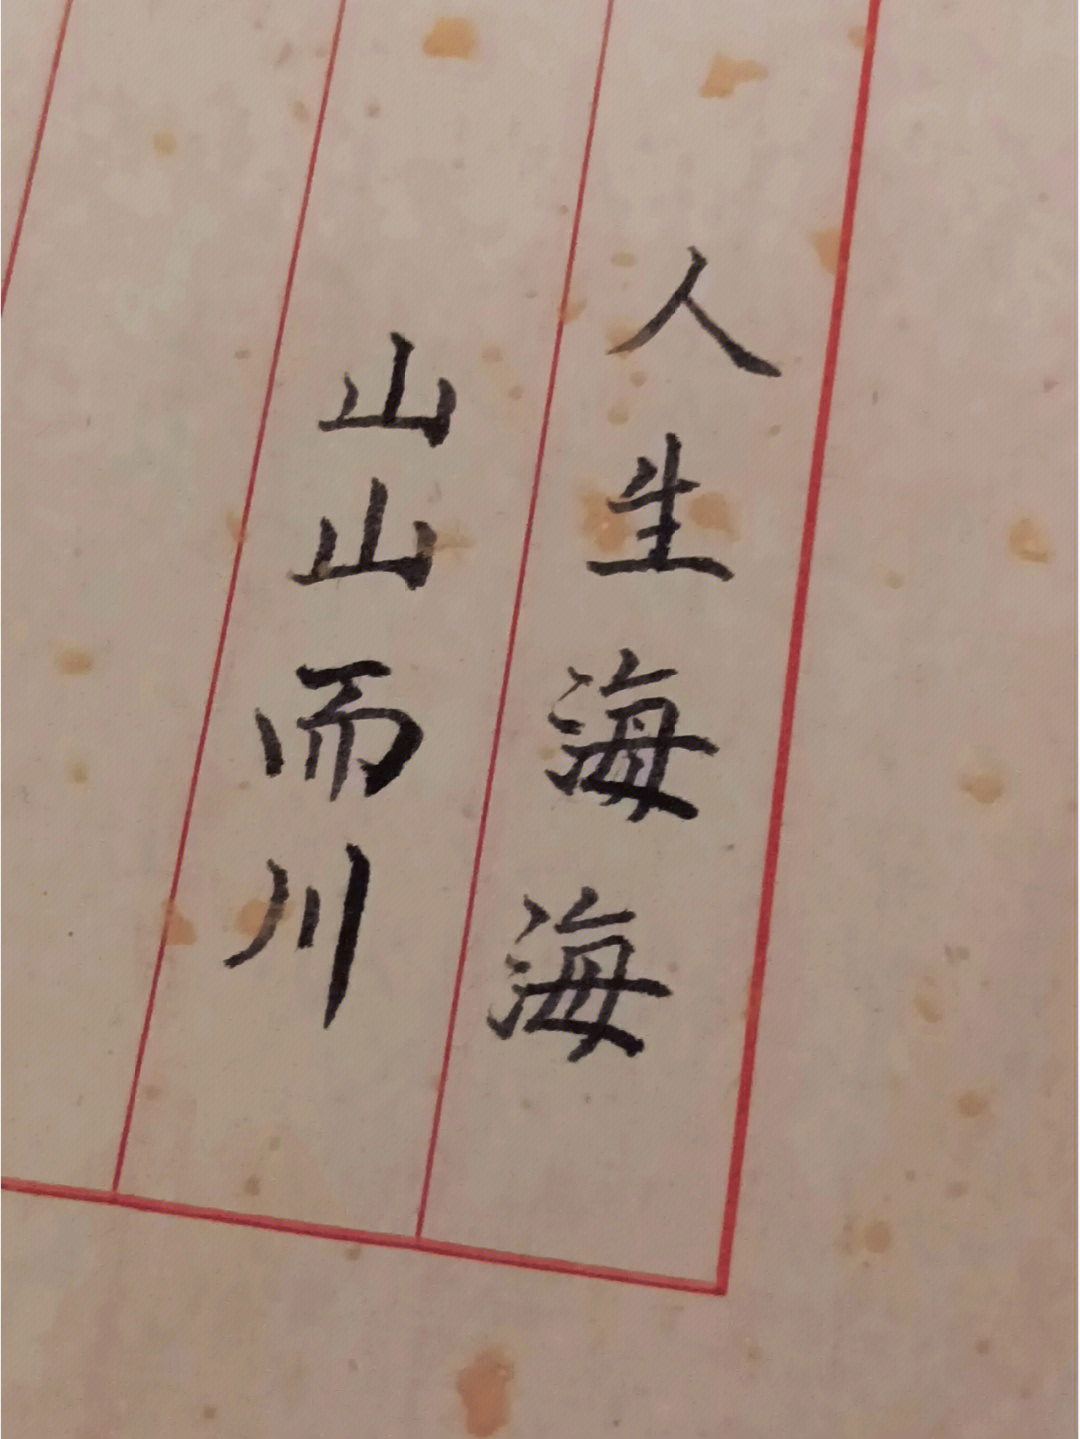 人生海海
山山而川